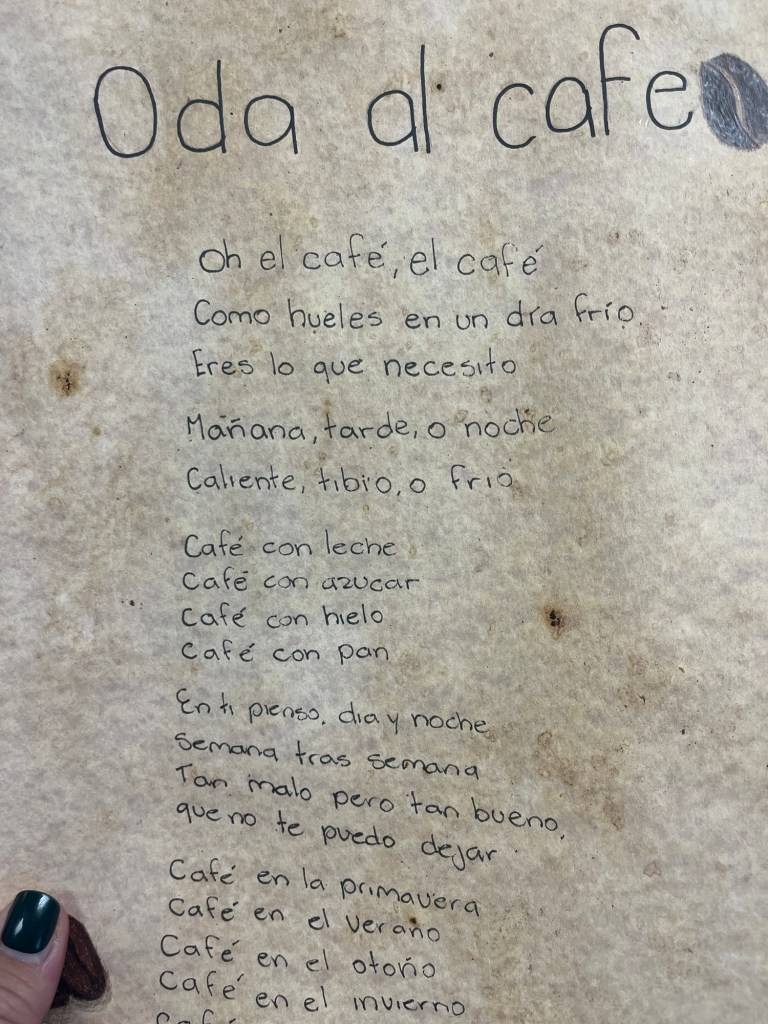 Oda al cafe
Oh el café, el café
Como hueles en un día frío.
Eres lo que necesito
Mañana, tarde, o noche
Caliente, tibio, o frio
Café con leche
Café con azucar
Café con hielo
Café con pan
En ti pienso, dia y noche
Semana tras semana
Tan malo pero tan bueno,
que no te puedo dejar.
Café en la primavera
Café en el verano
Café en el otoño
Café en el invierno